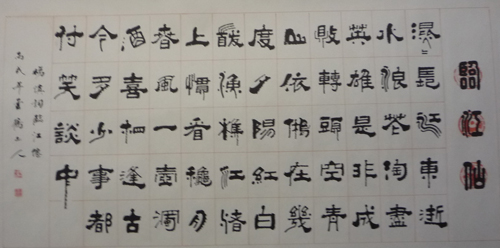 臨江仙
滾長江東逝
水浪花淘盡
英雄是非成
敗轉頭空青
山依在幾
度夕陽紅白
髮漁樵江渚
上慣看秋月
春風一壺濁
酒喜逢古
今多少事都
付笑談中
楊慎詞臨江僊